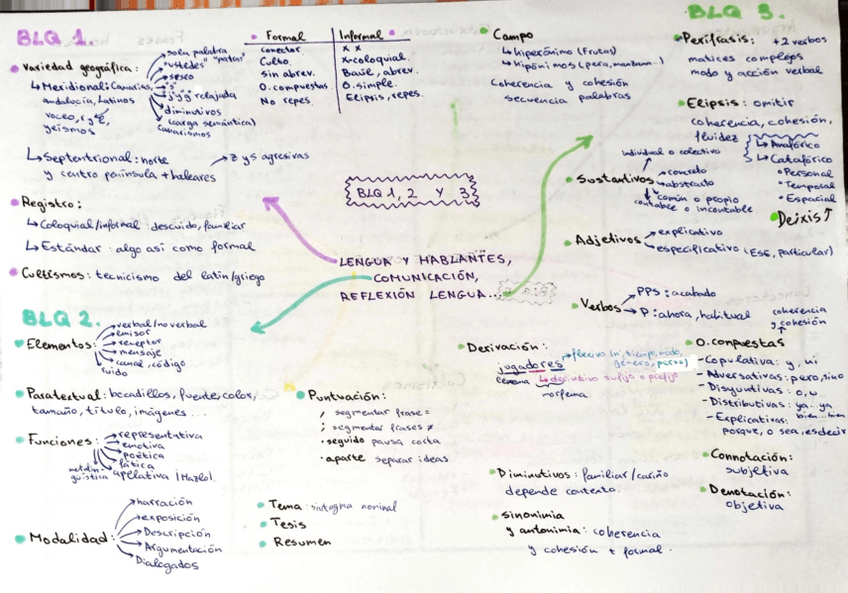 BLQ 1.
Variedad geográfica:
sola palabra
"ustedes" "patas"
seseo
"s"
"j" y "g" relajada
diminutivos
(carga semántica)
canarismos
↳ Meridional: Canarias,
andalucía, Latinos
voceo, r y l,
yeísmos
↳ Septentrional: norte → z y s agresivas
y centro península + baleares
Registro:
↳ Coloquial/informal: descuido, familiar
↳ Estándar: algo así como formal
Cultismos: tecnicismo del latín/griego
Formal Informal
conector. x x
Culto. x coloquial.
Sin abrev. Base, abrev.
O. compuestas. O. simple.
No repes. Elipsis, repes.
Campo
↳ hiperónimo (Frutas)
↳ hipónimos (pera, manzan...)
Coherencia y cohesión
secuencia palabras
BLQ 1, 2 Y 3
LENGUA Y HABLANTES,
COMUNICACIÓN,
REFLEXIÓN LENGUA...
BLQ 2.
Elementos:
verbal/no verbal
emisor
receptor
mensaje
canal, código
ruido
Paratextual: bocadillos, fuente, color,
tamaño, título, imágenes...
Funciones:
representativa
emotiva
poética
fática
apelativa (Hazlo).
metalin-
güística
Modalidad:
narración
exposición
Descripción
Argumentación
Dialogados
Puntuación:
, segmentar frase =
; segmentar frases ≠
. seguido pausa corta
. aparte separar ideas
Tema: sintagma nominal
Tesis
Resumen
BLQ 3.
Perífrasis: +2 verbos
matices complejos
modo y acción verbal
Elipsis: omitir
coherencia, cohesión,
fluidez
↳ Anafórico
↳ Catafórico
• Personal
• Temporal
• Espacial
Deixis↑
individual o colectivo
Sustantivos
concreto
abstracto
común o propio
contable o incontable
Adjetivos
explicativo
especificativo (ESE, particular)
Verbos
PPS: acabado
P: ahora, habitual
coherencia
y cohesión
Derivación:
jugadores → flexivo (n, tiempo, modo,
género, perso)
lexema ↳ derivativo sufijo o prefijo
morfema
O. compuestas
- Copulativa: y, ni
- Adversativas: pero, sino
- Disyuntivas: o, u
- Distributivas: ya...ya
bien...bien
- Explicativas:
porque, o sea, es decir
Connotación:
subjetiva
Denotación:
objetiva
Diminutivos: familiar/cariño
depende contexto.
sinonimia
y antonimia: coherencia
y cohesión + formal.